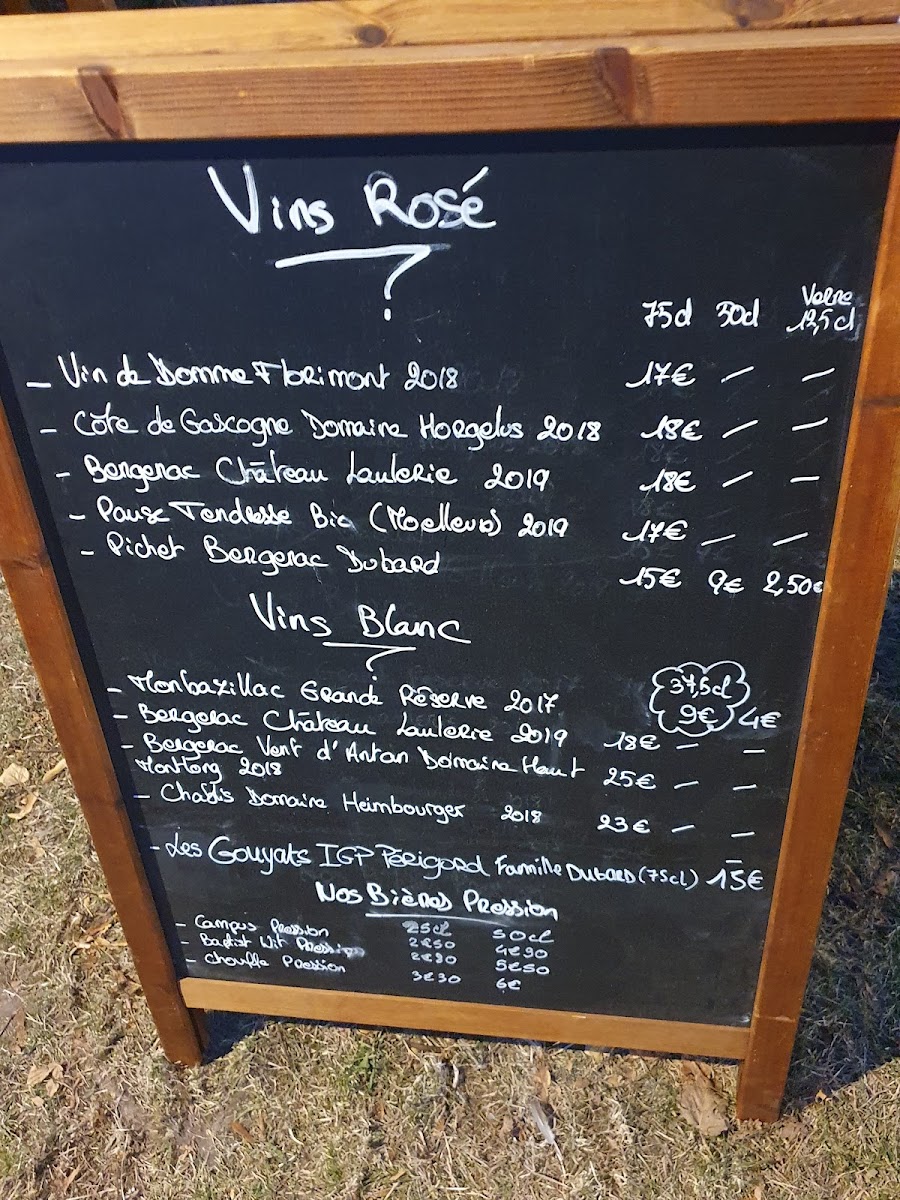 Vins Rosé
75cl 50cl Verre 12,5 cl
- Vin de Domme Florimont 2018 17€ - -
- Côte de Gascogne Domaine Horgelus 2018 18€ - -
- Bergerac Château Laulerie 2019 18€ - -
- Pause Tendresse Bio (Moelleux) 2019 17€ - -
- Pichet Bergerac Dubard 15€ 9€ 2,50€
Vins Blanc
- Monbazillac Grande Réserve 2017 37,5cl 9€ 4€
- Bergerac Château Laulerie 2019 18€ - -
- Bergerac Vent d'Antan Domaine Haut
Montlong 2018 25€ - -
- Chablis Domaine Heimbourger 2018 23€ - -
- Les Gouyats IGP Périgord Famille Dubard (75cl) 15€
Nos Bières Pression
25cl 50cl
- Campus Pression 2€50 4€90
- Baptist Wit Pression 2€90 5€50
- Chouffe Pression 3€30 6€